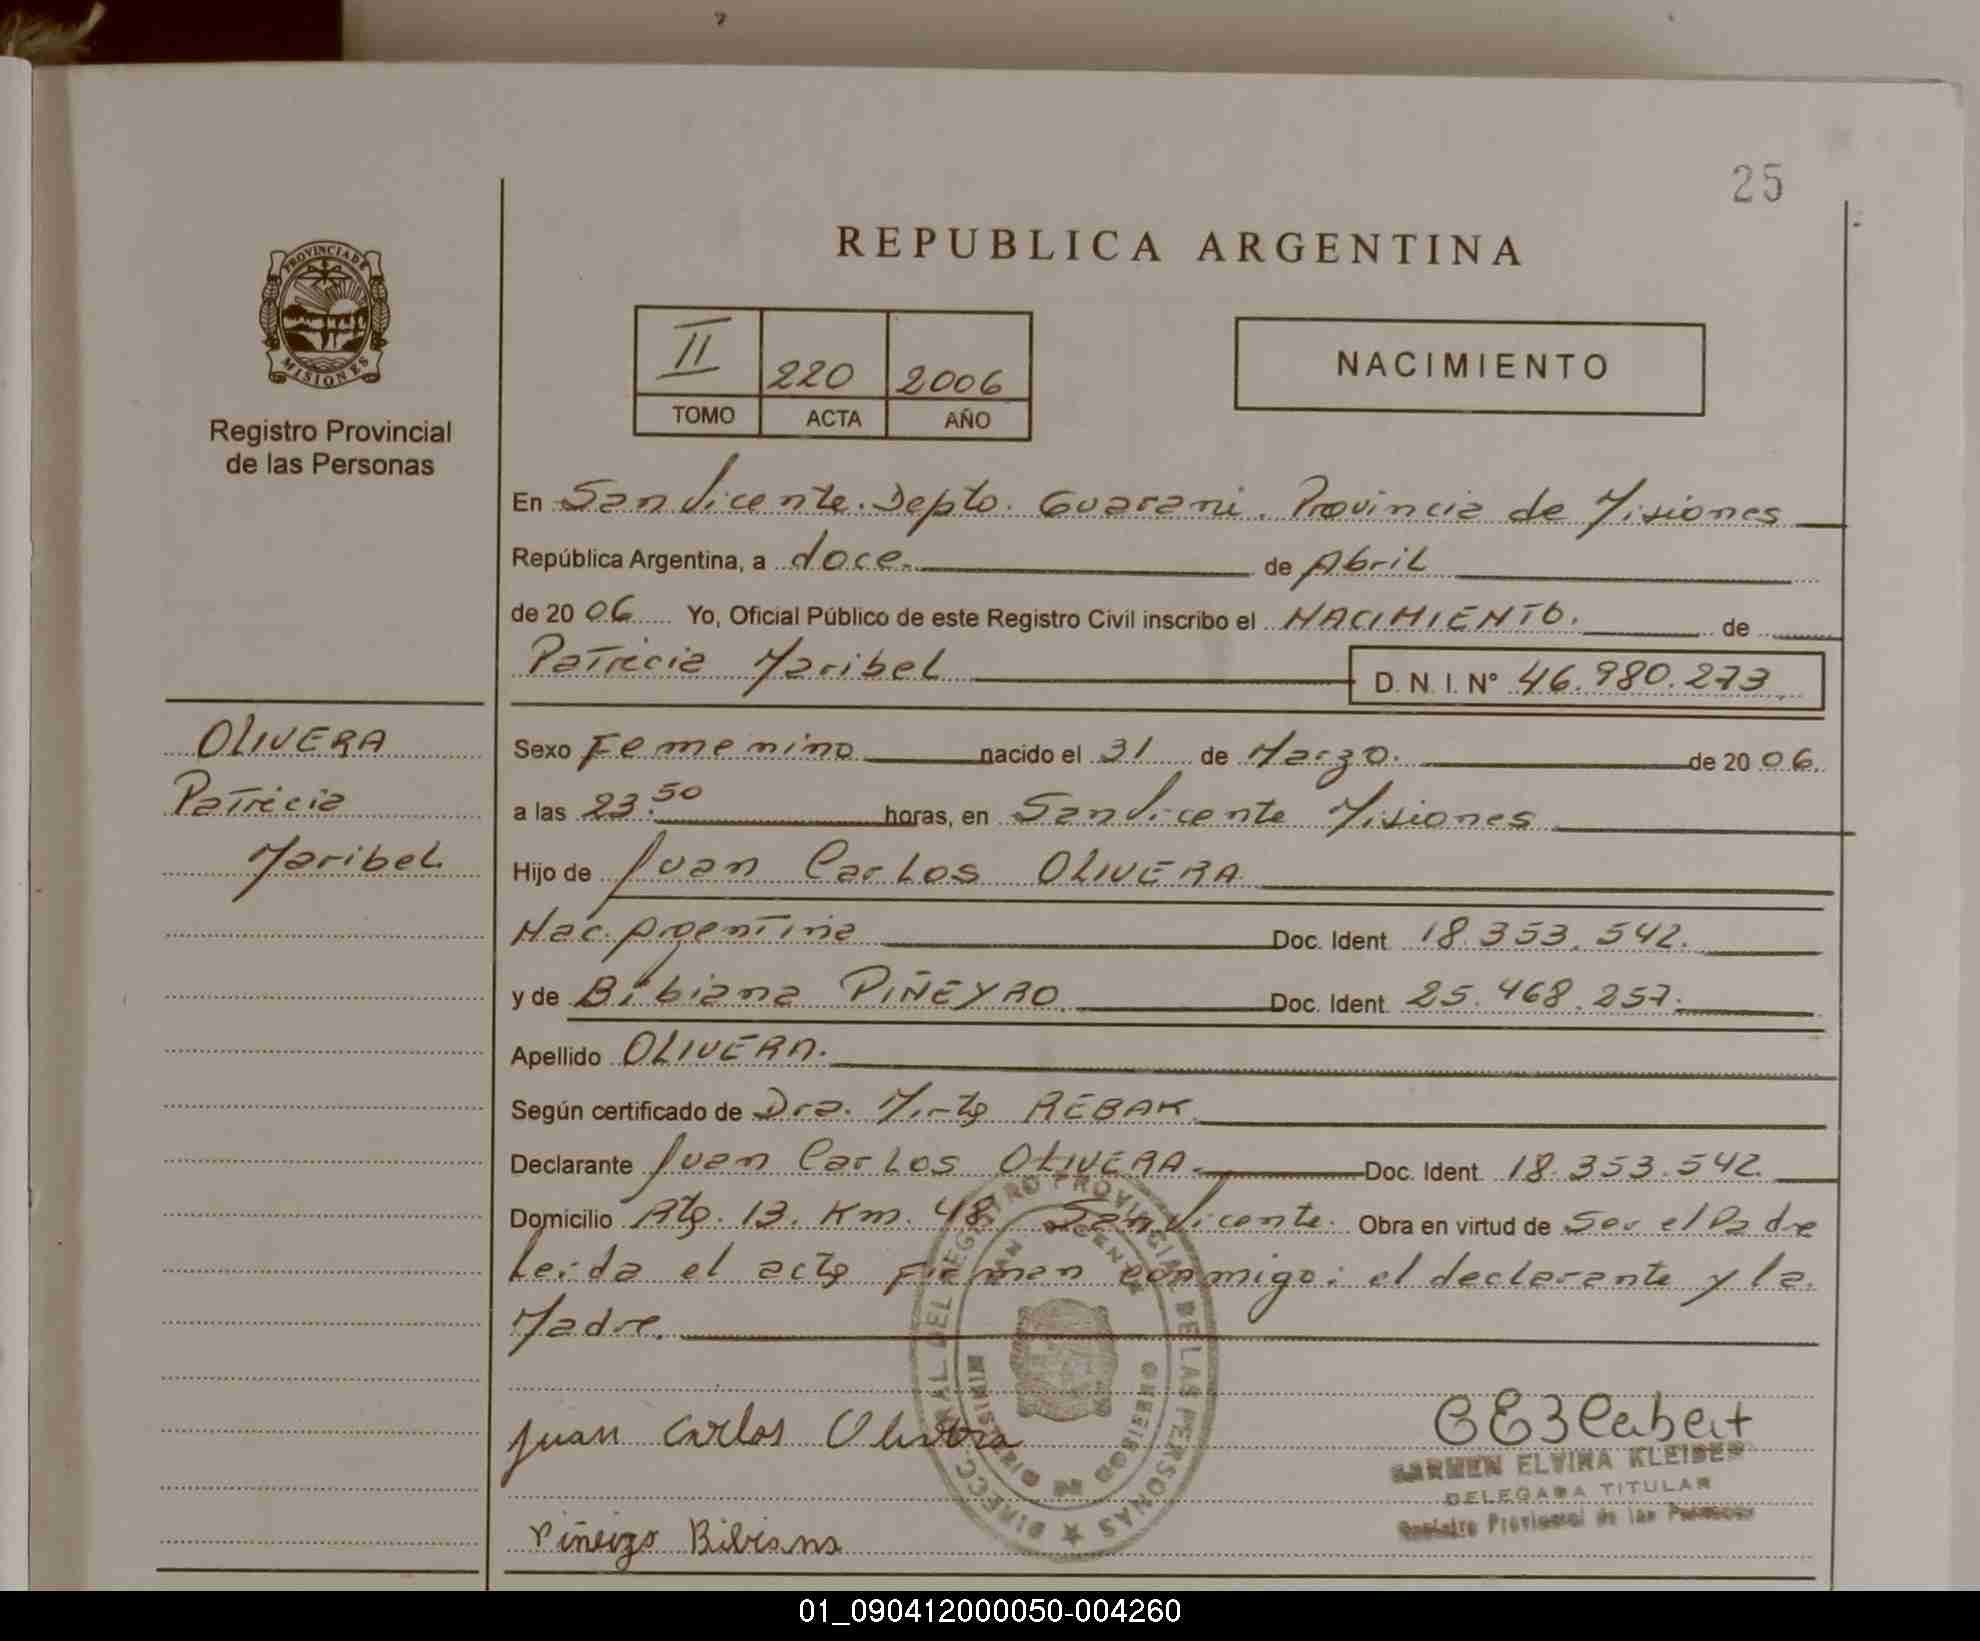 25
REPUBLICA ARGENTINA
PROVINCIA DE
MISIONES
Registro Provincial
de las Personas
II 220 2006
TOMO ACTA AÑO
NACIMIENTO
En San Vicente. Depto. Guarani. Provincia de Misiones
República Argentina, a doce. de Abril
de 20 06 Yo, Oficial Público de este Registro Civil inscribo el NACIMIENTO. de
Patricia Maribel D. N. I. N° 46.980.273
OLIVERA
Patricia
Maribel
Sexo Femenino nacido el 31 de Marzo. de 20 06.
a las 23.50 horas, en San Vicente Misiones
Hijo de Juan Carlos OLIVERA
Nac. Argentina Doc. Ident. 18.353.542.
y de Bibiana PIÑEYRO Doc. Ident. 25.468.257.
Apellido OLIVERA.
Según certificado de Dra. Mirta REBAK
Declarante Juan Carlos OLIVERA. Doc. Ident. 18.353.542.
Domicilio Rta. 13. Km. 48 San Vicente. Obra en virtud de Ser el Padre
Leida el acta firman conmigo: el declarante y la
Madre.
DIRECC. GRAL. DEL REGISTRO PROVINCIAL DE LAS PERSONAS
SAN VICENTE
MINISTERIO DE GOBIERNO
Juan Carlos Olivera
CARMEN ELVIRA KLEIBER
DELEGADA TITULAR
Registro Provincial de las Personas
Piñeyro Bibiana
01_090412000050-004260